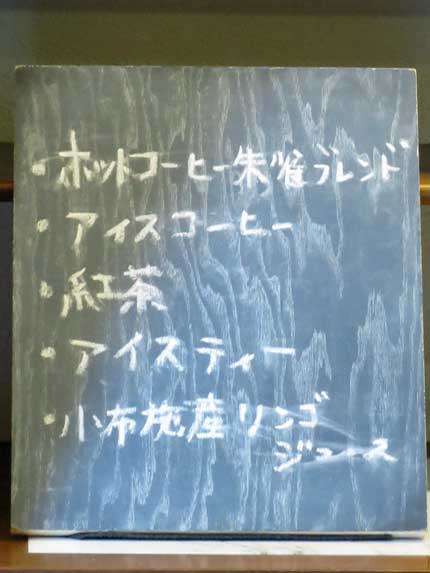 ・ホットコーヒー朱雀ブレンド
・アイスコーヒー
・紅茶
・アイスティー
・小布施産リンゴ
ジュース